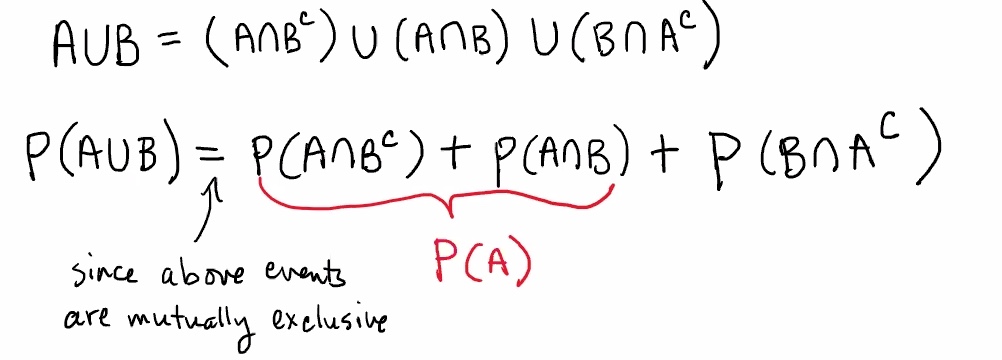 A∪B = (A∩Bᶜ) ∪ (A∩B) ∪ (B∩Aᶜ)
P(A∪B) = P(A∩Bᶜ) + P(A∩B) + P(B∩Aᶜ)
P(A)
since above events
are mutually exclusive